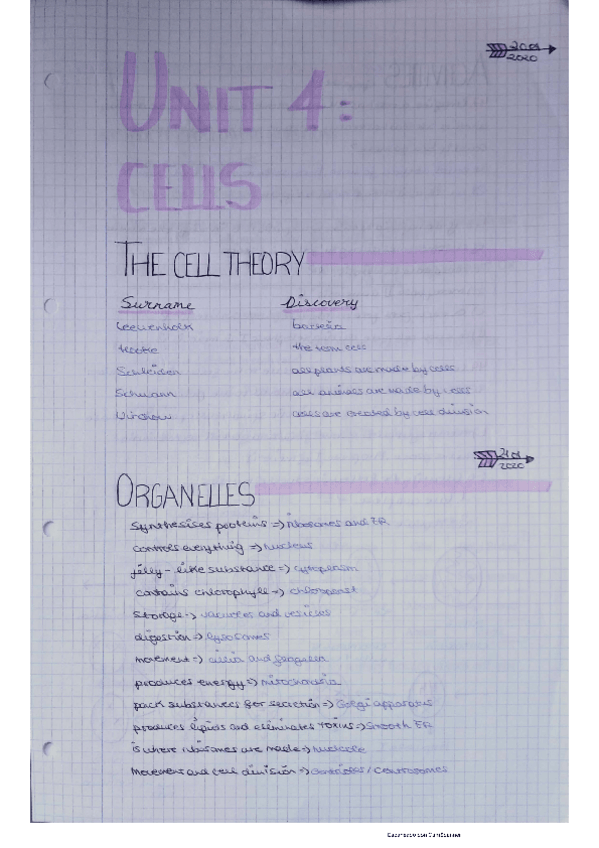 20.01
2020
UNIT 4:
CELLS
THE CELL THEORY
Surname Discovery
Leeuwenhoek bacteria
Hooke the term cell
Schleiden all plants are made by cells
Schwann all animals are made by cells
Virchow cells are created by cell division
21.01
2020
ORGANELLES
Synthesises proteins => ribosomes and ER
controls everything => nucleus
jelly-like substance => cytoplasm
contains chlorophyle => chloroplast
Storage => vacuoles and vesicles
digestion => lysosomes
movement => cilia and flagella
produces energy => mitochondria
pack substances for secretion => Golgi apparatus
produces lipids and eliminates toxins => Smooth ER
is where ribosomes are made =>
Movement and cell division => Centrioles / Centrosomes
Escaneado con CamScanner